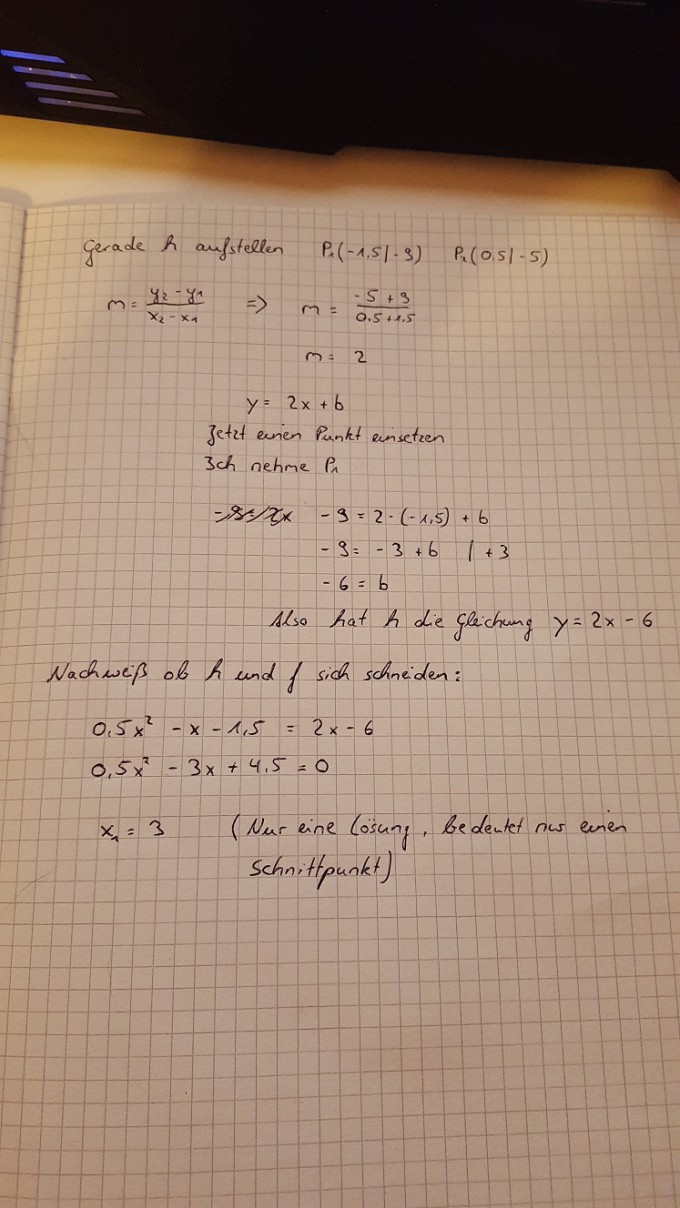 Gerade h aufstellen P₁(-1,5|-9) P₂(0,5|-5)
m = (y₂-y₁)/(x₂-x₁) => m = (-5+9)/(0,5+1,5)
m = 2
y = 2x + b
Jetzt einen Punkt einsetzen
Ich nehme P₁
-9 = 2·(-1,5) + b
-9 = -3 + b | +3
-6 = b
Also hat h die Gleichung y = 2x - 6
Nachweiß ob h und f sich schneiden:
0,5x² - x - 1,5 = 2x - 6
0,5x² - 3x + 4,5 = 0
x₁ = 3 (Nur eine Lösung, bedeutet nur einen
Schnittpunkt)